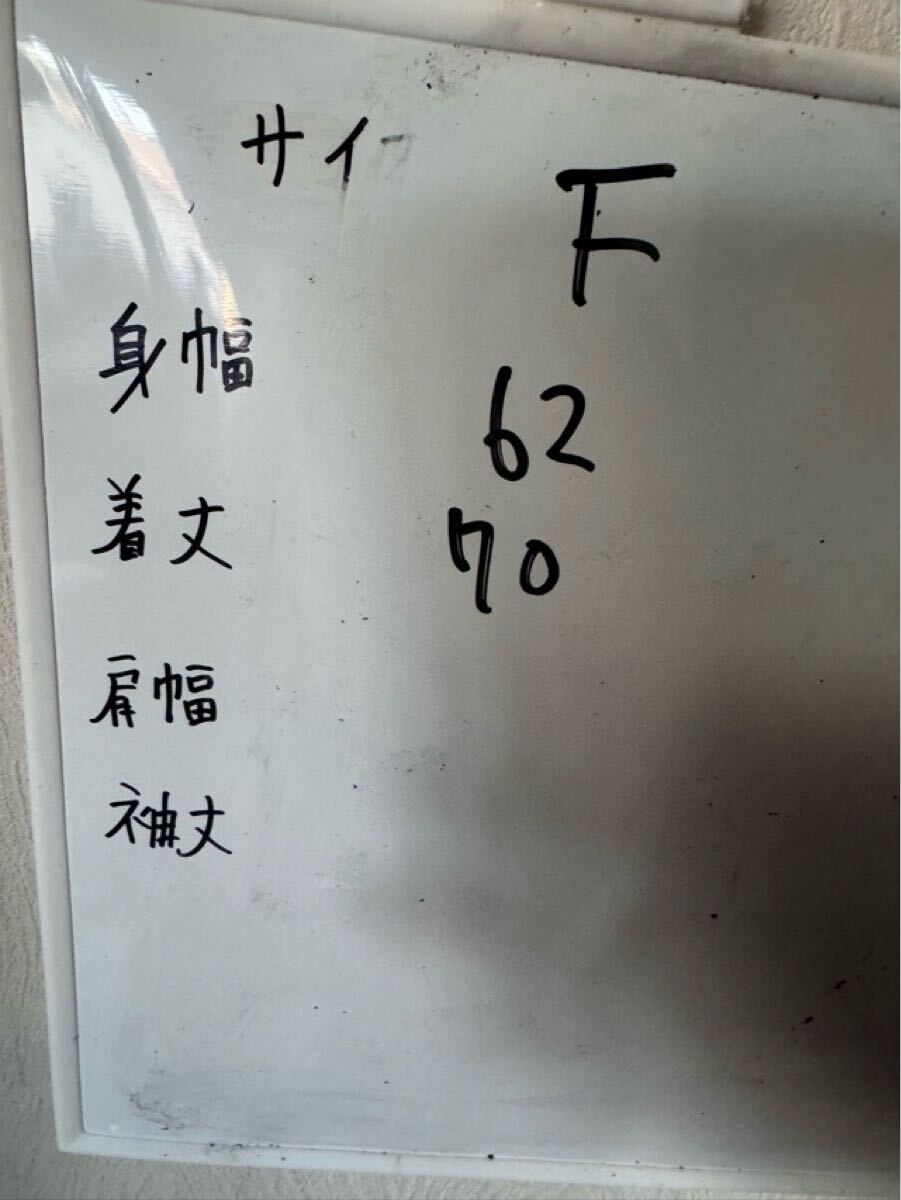 サイ F
身幅 62
着丈 70
肩幅
袖丈